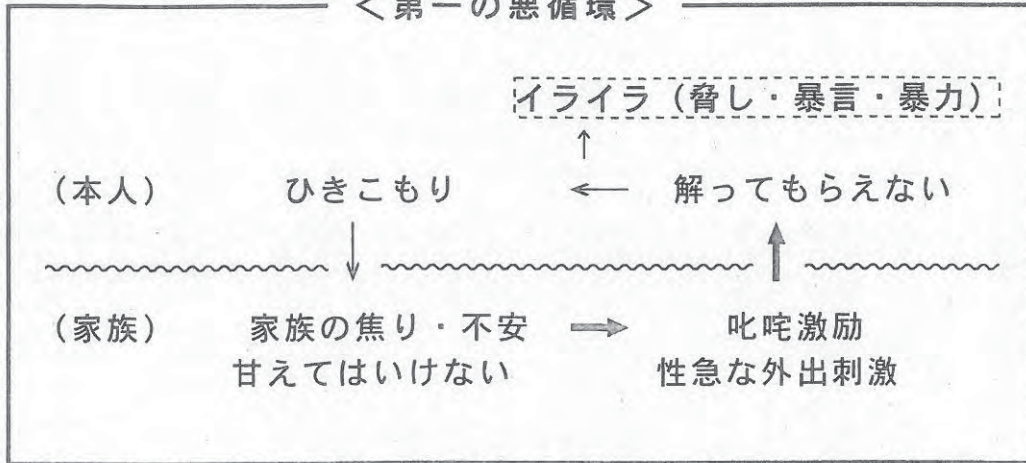 ＜第一の悪循環＞
イライラ（脅し・暴言・暴力）
（本人） ひきこもり ← 解ってもらえない
（家族） 家族の焦り・不安 ⇒ 叱咤激励
甘えてはいけない 性急な外出刺激